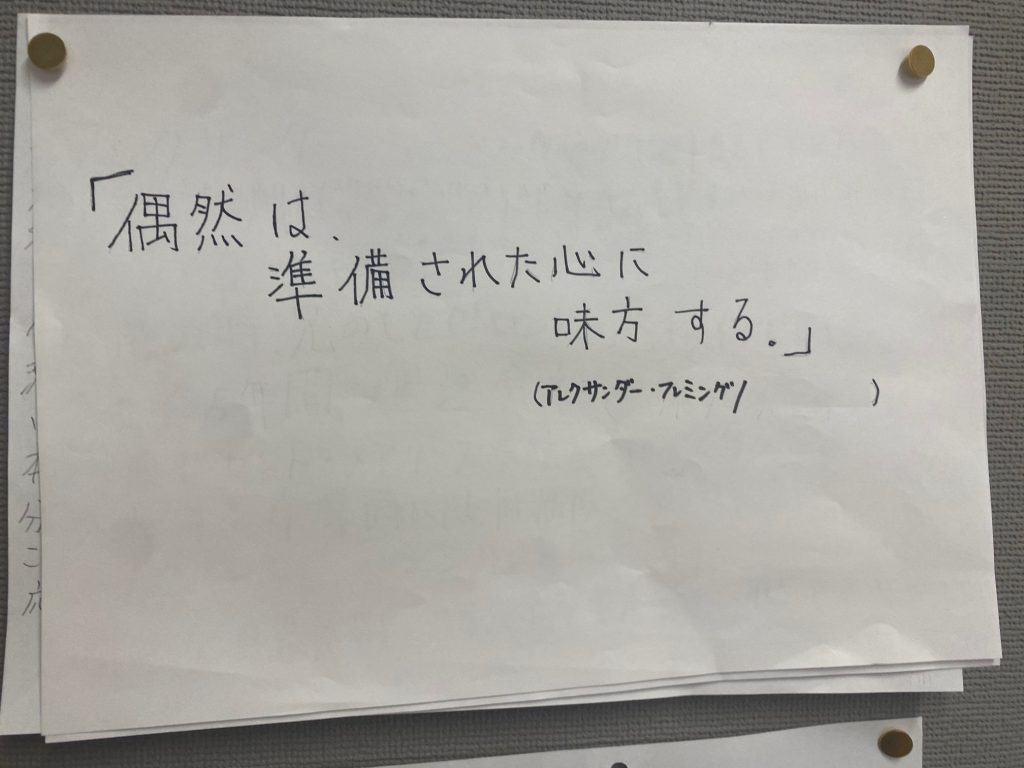 「偶然は、
準備された心に
味方する。」
(アレクサンダー・フレミング/ )